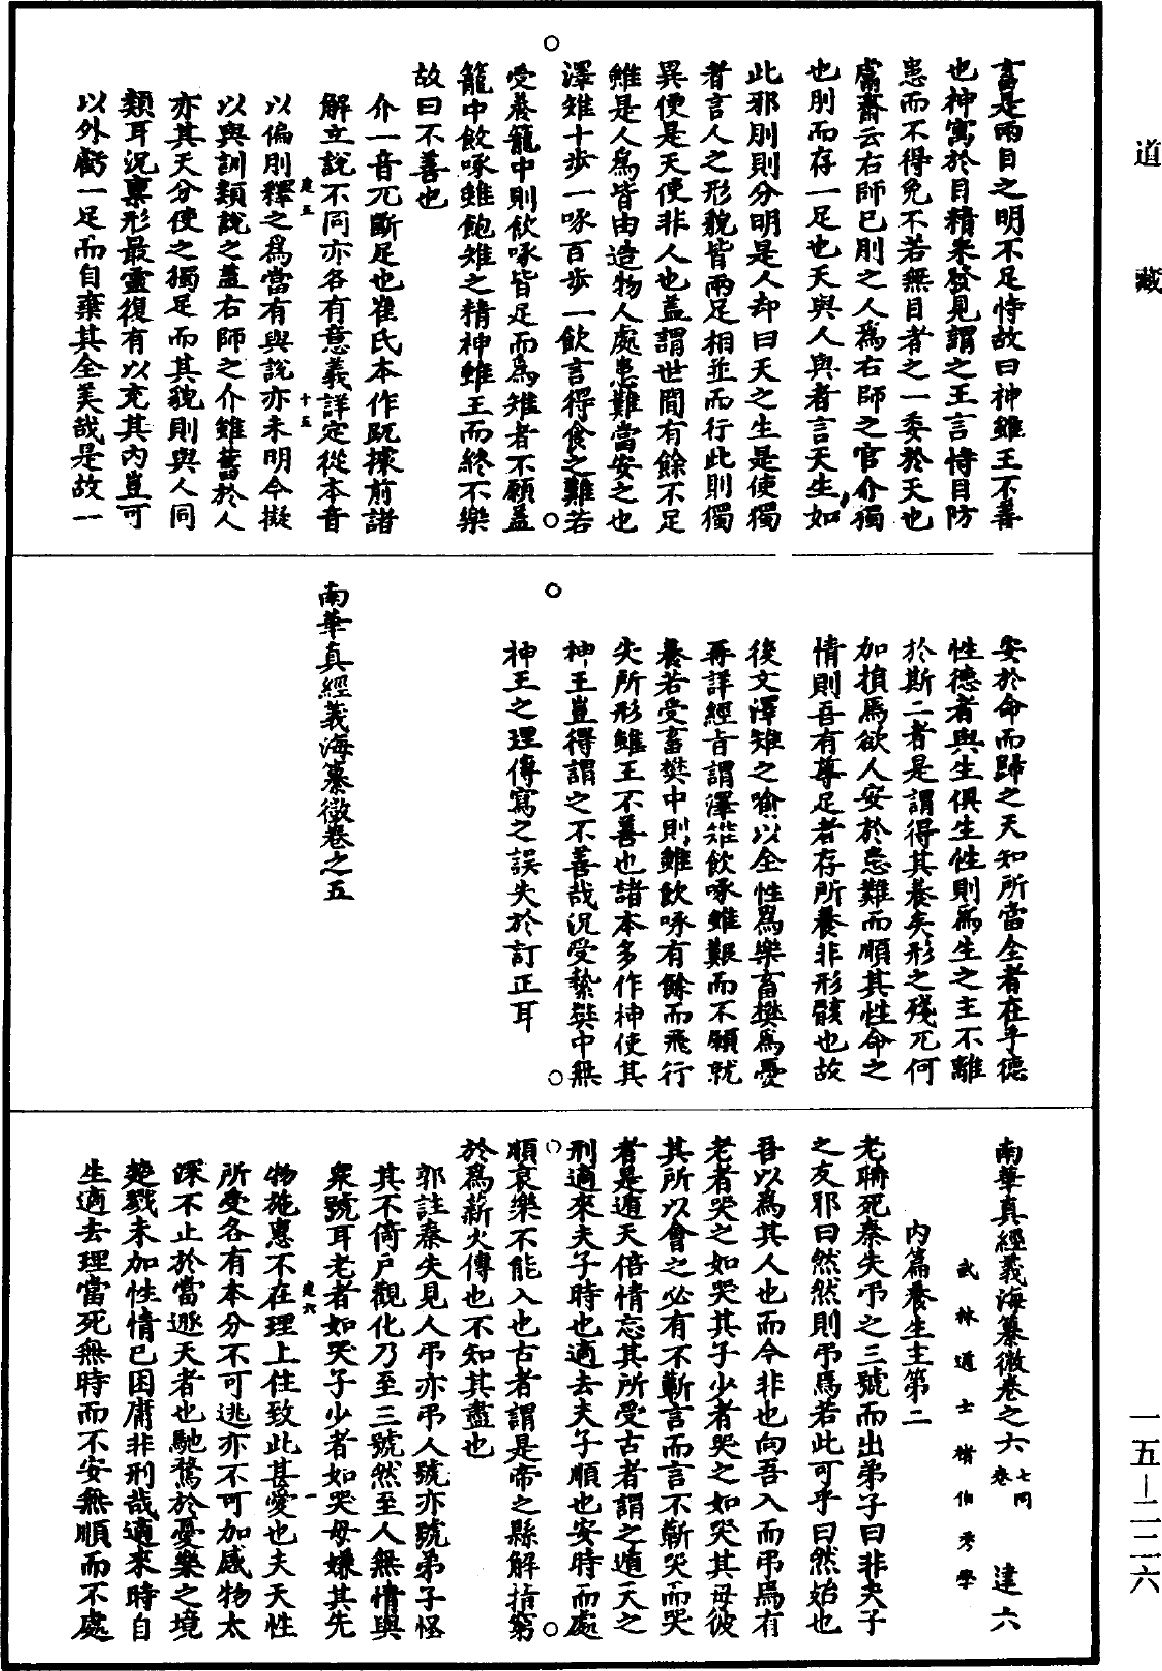 道藏
言是兩目之明不足恃故曰神雖王不善
也神寓於目精米發見謂之王言恃目防
患而不得免不若無目者之一委於天也
鬳齋云右師已刖之人為右師之官介獨
也刖而存一足也天與人與者言天生如
此邪刖則分明是人却曰天之生是使獨
者言人之形貌皆兩足相並而行此則獨
異便是天使非人也盖謂世間有餘不足
雖是人為皆由造物人處患難當安之也
澤雉十步一啄百步一飲言得食之難若
受養籠中則飲啄皆足而為雉者不願盖
籠中飲啄雖飽雉之精神雖王而終不樂
故曰不善也
介一音兀斷足也崔氏本作䟣據前諸
解立說不同亦各有意義詳定從本音
以偏刖釋之為當有與說亦未明今擬
建五
十五
以與訓類說之盖右師之介雖舊於人
亦其天分使之獨足而其貌則與人同
類耳況稟形最靈復有以充其內豈可
以外虧一足而自棄其全美哉是故一
安於命而歸之天知所當全者在乎德
性德者與生俱生性則為生之主不離
於斯二者是謂得其養矣形之殘兀何
加損焉欲人安於患難而順其性命之
情則吾有尊足者存所養非形骸也故
後文澤雉之喻以全性為樂畜樊為憂
再詳經旨謂澤雉飲啄雖艱而不願就
養若受畜樊中則雖飲啄有餘而飛行
失所形雖王不善也諸本多作神使其
神王豈得謂之不善哉況受縶樊中無
神王之理傳寫之誤失於訂正耳
南華真經義海纂微卷之五
南華真經義海纂微卷之六 七同卷 建六
武林道士褚伯秀學
內篇養生主第二
老聃死秦失弔之三號而出弟子曰非夫子
之友邪曰然然則弔焉若此可乎曰然始也
吾以為其人也而今非也向吾入而弔焉有
老者哭之如哭其子少者哭之如哭其母彼
其所以會之必有不蘄言而言不蘄哭而哭
者是遁天倍情忘其所受古者謂之遁天之
刑適來夫子時也適去夫子順也安時而處
順哀樂不能入也古者謂是帝之縣解指窮
於為薪火傳也不知其盡也
郭註秦失見人弔亦弔人號亦號弟子怪
其不倚戶觀化乃至三號然至人無情與
衆號耳老者如哭子少者如哭母嫌其先
物施惠不在理上住致此甚愛也夫天性
建六
一
所受各有本分不可逃亦不可加感物太
深不止於當遁天者也馳騖於憂樂之境
楚戮未加性情已困庸非刑哉適來時自
生適去理當死無時而不安無順而不處
一五—二二六